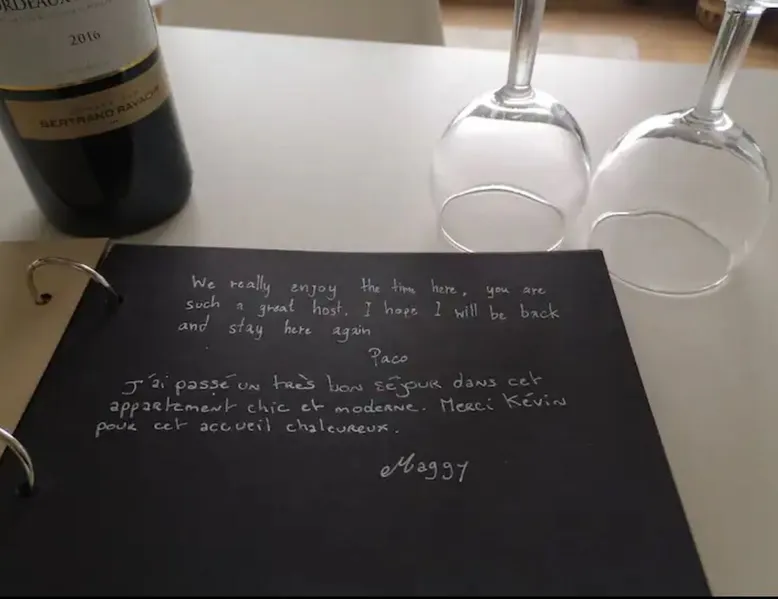 BORDEAUX
2016
BERTRAND RAVACHE
We really enjoy the time here, you are
such a great host. I hope I will be back
and stay here again
Paco
J'ai passé un très bon séjour dans cet
appartement chic et moderne. Merci Kévin
pour cet accueil chaleureux.
Maggy